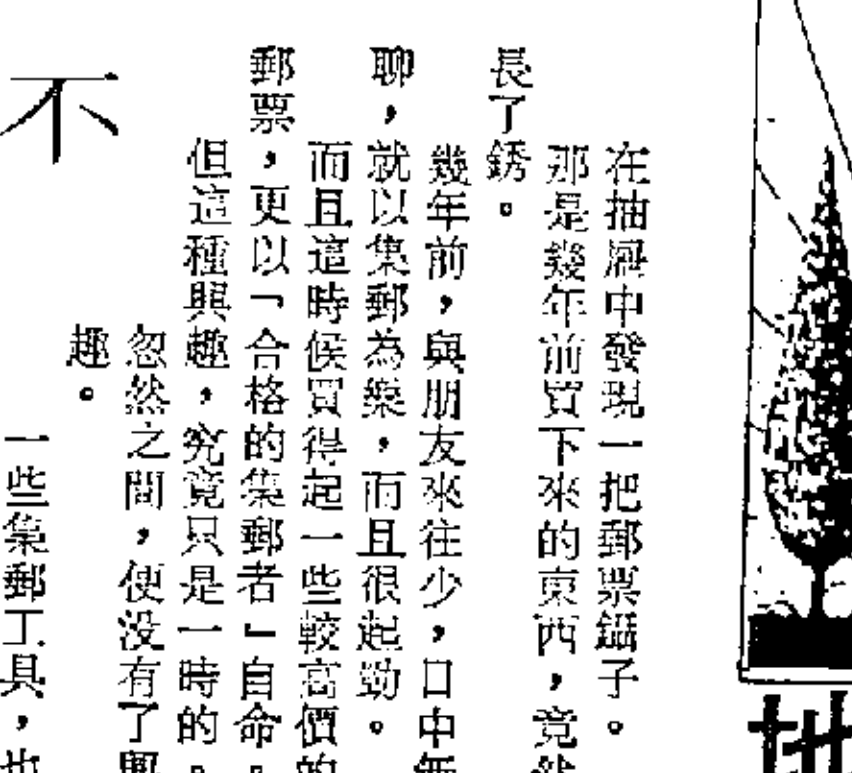 在抽屜中發現一把郵票鑷子。
那是幾年前買下來的東西，竟然
長了銹。
幾年前，與朋友來往少，口中無
聊，就以集郵為樂，而且很起勁。
而且這時候買得起一些較高價的
郵票，更以「合格的集郵者」自命。
但這種興趣，究竟只是一時的。
忽然之間，便沒有了興
趣。
一些集郵工具，也
不